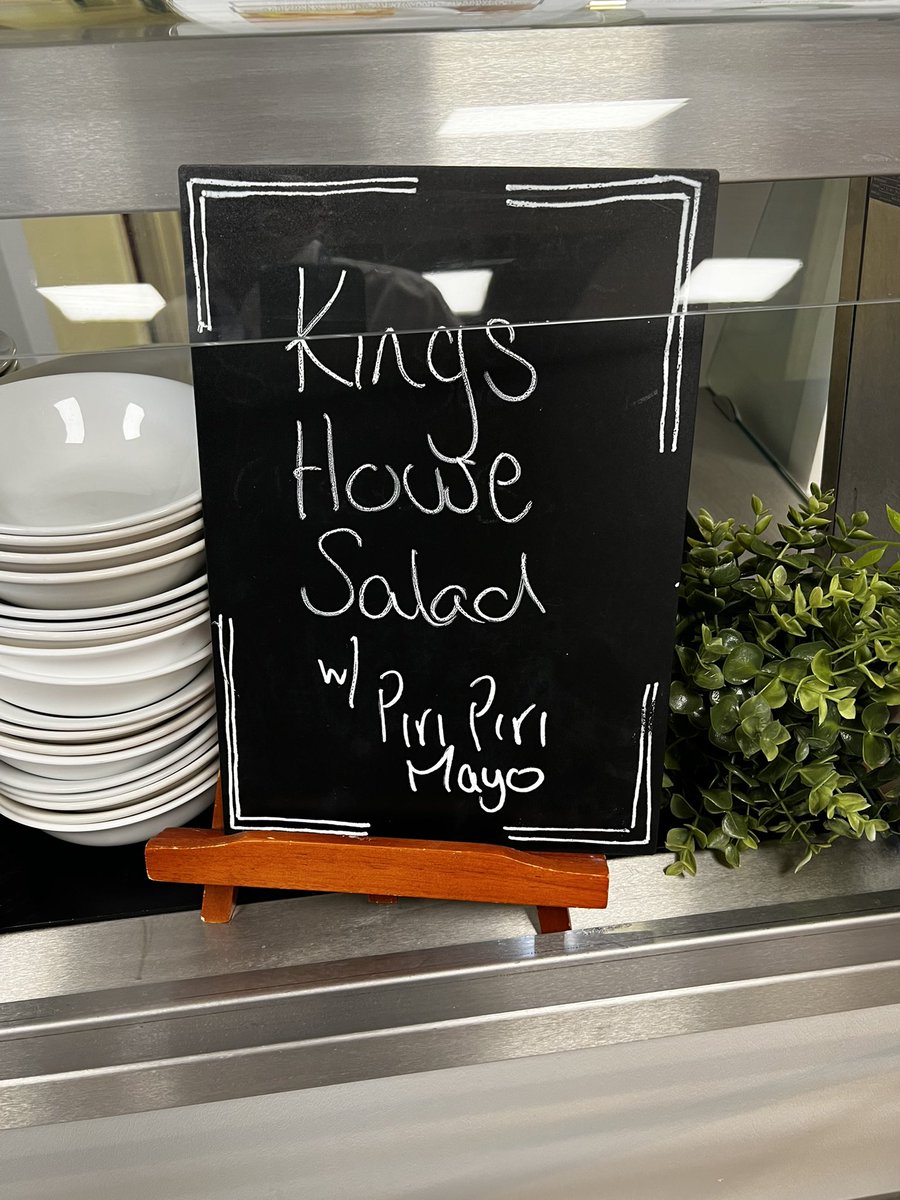 Kings
House
Salad
w/ Piri Piri
Mayo